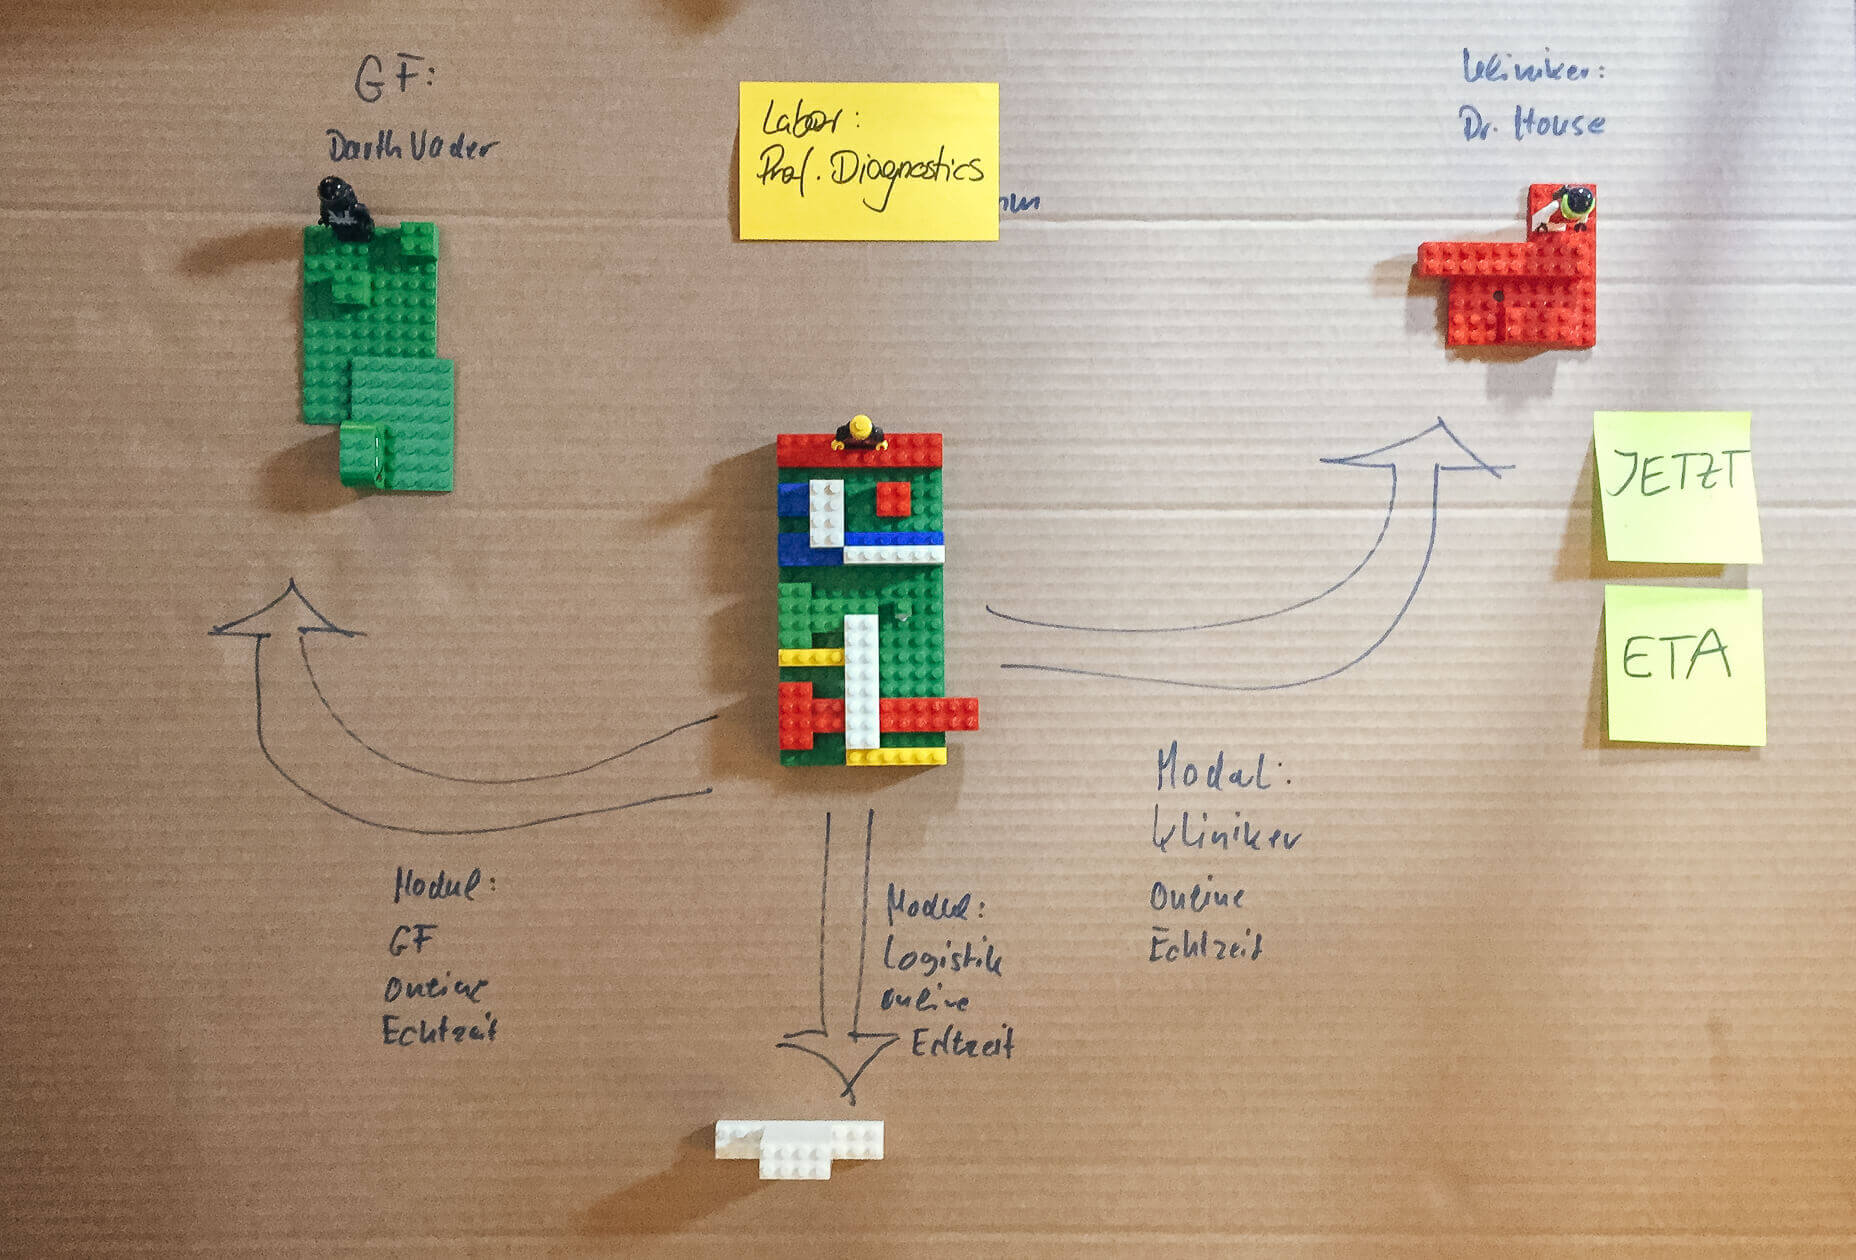 GF:
Darth Vader
Labor:
Prof. Diagnostics
Kliniker:
Dr. House
JETZT
ETA
Modul:
Kliniker
Online
Echtzeit
Modul:
GF
Online
Echtzeit
Modul:
Logistik
online
Echtzeit